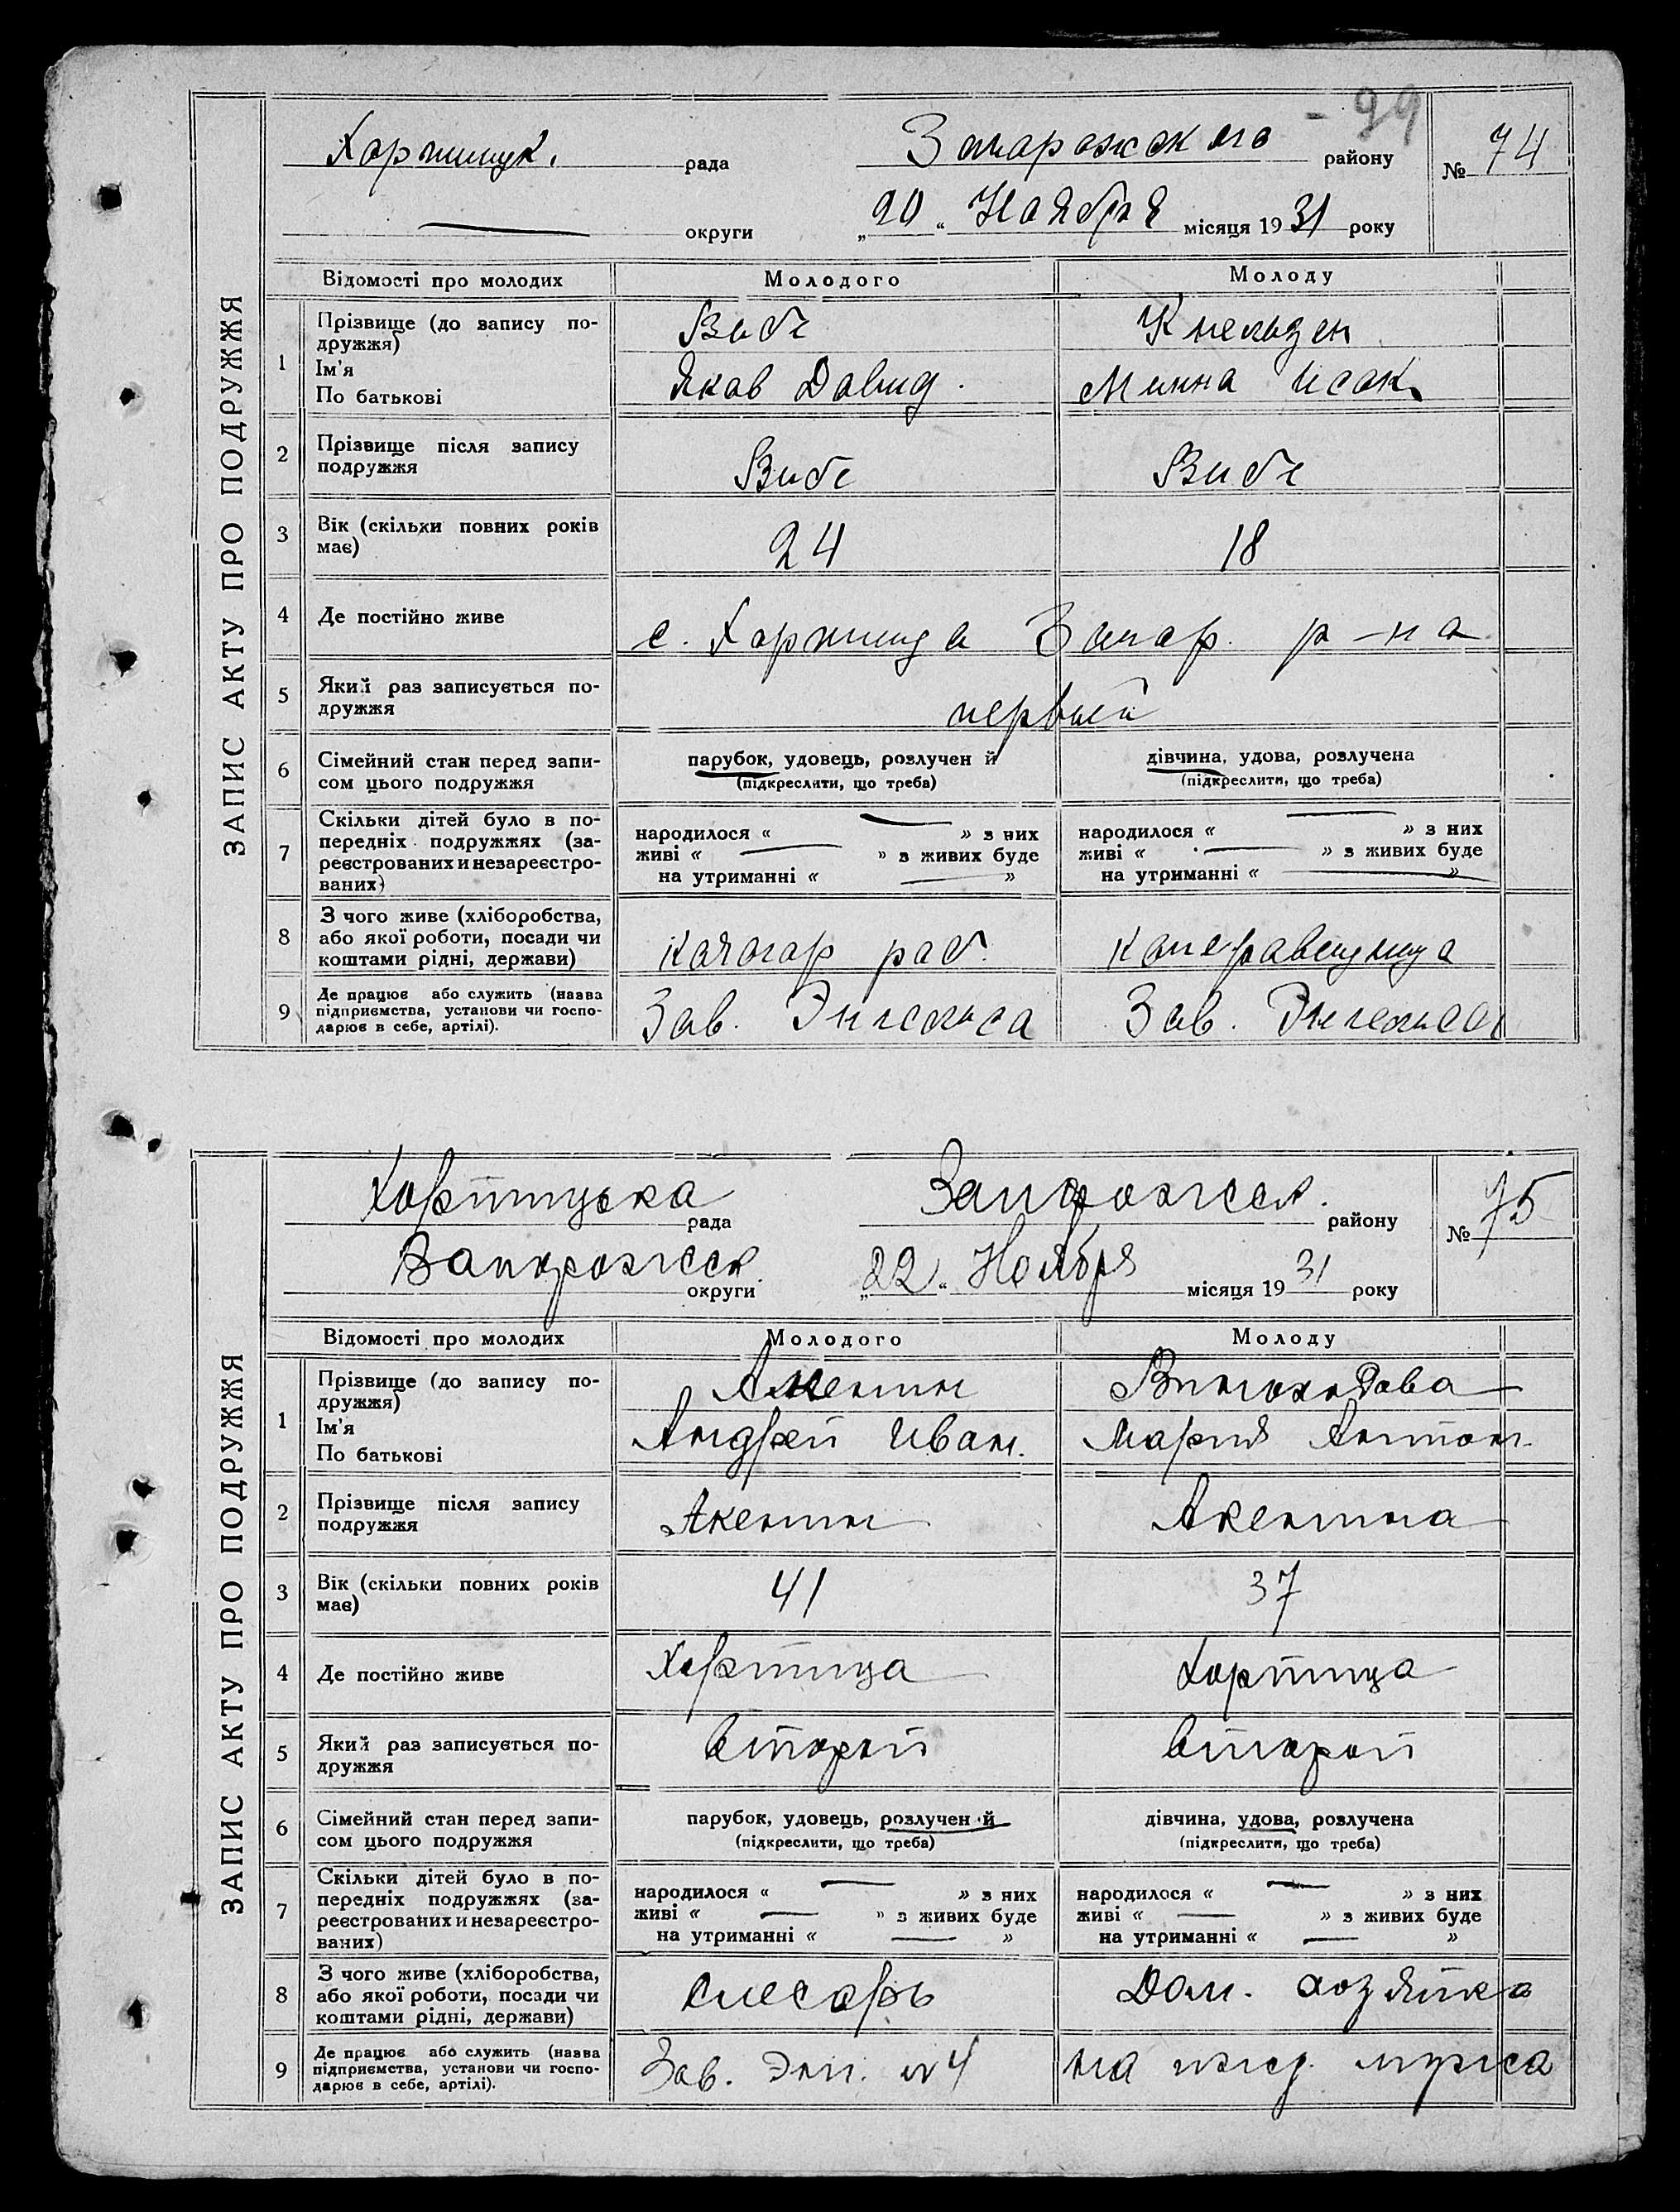 - 99
Хортицк. рада Запарожского району № 74
округи „20“ Ноября місяця 1931 року
ЗАПИС АКТУ ПРО ПОДРУЖЖЯ
Відомості про молодих Молодого Молоду
1 Прізвище (до запису подружжя) Вибе Кнельзен
Ім'я По батькові Яков Давид. Минна Исак.
2 Прізвище після запису подружжя Вибе Вибе
3 Вік (скільки повних років має) 24 18
4 Де постійно живе с. Хортица Запор. р-на
5 Який раз записується подружжя первый
6 Сімейний стан перед записом цього подружжя парубок, удовець, розлучен й дівчина, удова, розлучена
(підкреслити, що треба) (підкреслити, що треба)
7 Скільки дітей було в попередніх подружжях (зареєстрованих и незареєстрованих)
народилося « » з них народилося « » з них
живі « » з живих буде живі « » з живих буде
на утриманні « » на утриманні « »
8 З чого живе (хліборобства, або якої роботи, посади чи коштами рідні, держави) раб.
9 Де працює або служить (назва підприємства, установи чи господарює в себе, артілі). Зав. Энгельса Зав. Энгельса
Хортицька рада Запорожск. району № 75
Запорожск. округи „22“ Ноября місяця 1931 року
ЗАПИС АКТУ ПРО ПОДРУЖЖЯ
Відомості про молодих Молодого Молоду
1 Прізвище (до запису подружжя) Акентин
Ім'я По батькові Андрей Иван. Мария Антон.
2 Прізвище після запису подружжя Акентин Акентина
3 Вік (скільки повних років має) 41 37
4 Де постійно живе Хортица Хортица
5 Який раз записується подружжя второй второй
6 Сімейний стан перед записом цього подружжя парубок, удовець, розлучен й дівчина, удова, розлучена
(підкреслити, що треба) (підкреслити, що треба)
7 Скільки дітей було в попередніх подружжях (зареєстрованих и незареєстрованих)
народилося « » з них народилося « » з них
живі « » з живих буде живі « » з живих буде
на утриманні « » на утриманні « »
8 З чого живе (хліборобства, або якої роботи, посади чи коштами рідні, держави) слесарь Дом. хозяйка
9 Де працює або служить (назва підприємства, установи чи господарює в себе, артілі). Зав. Энг. №4 на ижд. мужса